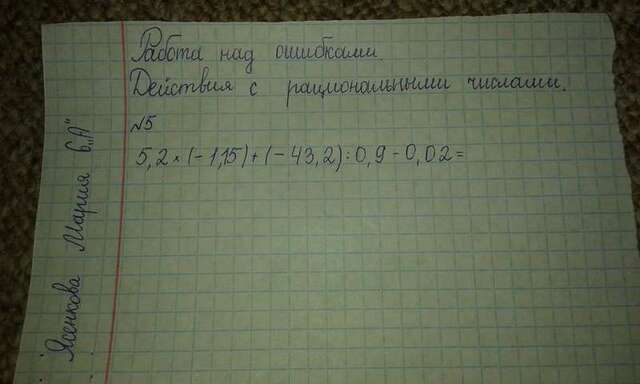 Ясенкова Мария 6„А"
Работа над ошибками.
Действия с рациональными числами.
№5
5,2 × (-1,15) + (-43,2) : 0,9 - 0,02 =